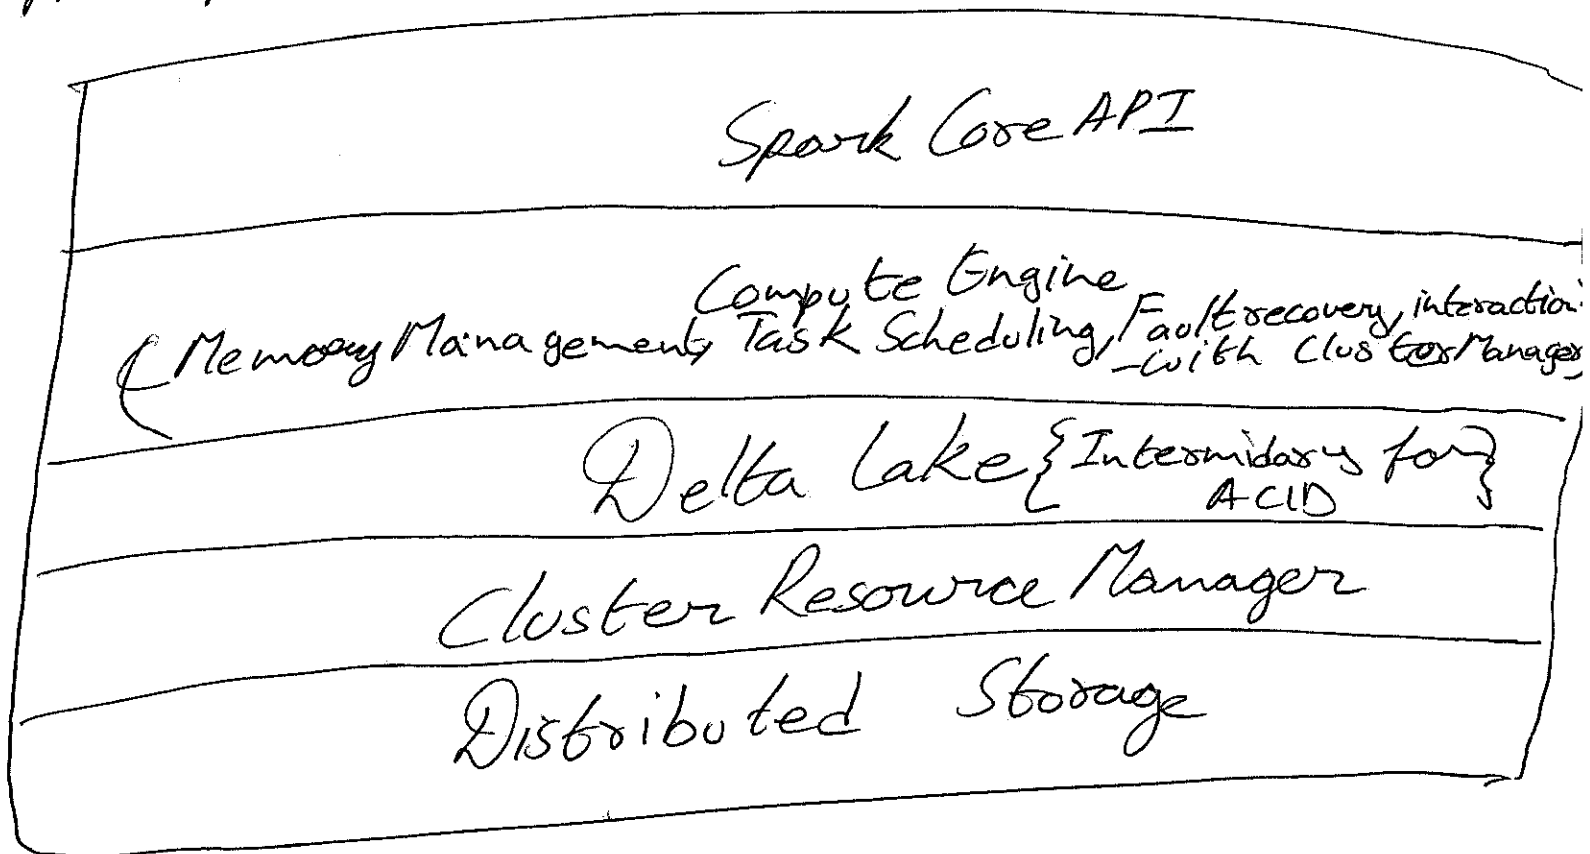 Spark Core API
Compute Engine
(Memory Management, Task Scheduling, Fault recovery, interaction
-with Cluster Manager)
Delta Lake {Intermidary for}
ACID
Cluster Resource Manager
Distributed Storage